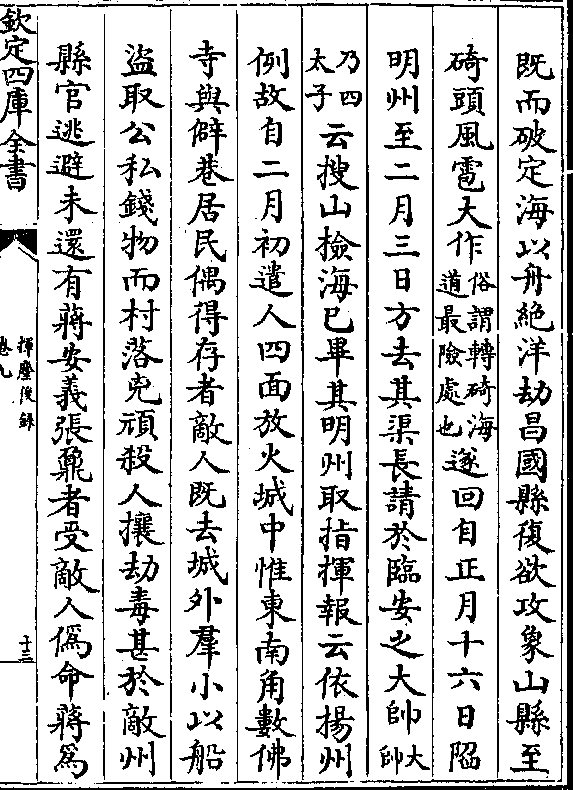 既而破定海以舟絶洋劫昌國縣復欲攻象山縣至
碕頭風雹大作俗謂轉碕海道最險處也遂回自正月十六日䧟
明州至二月三日方去其渠長請於臨安之大帥大帥
乃四太子云搜山檢海已畢其明州取指揮報云依揚州
例故自二月初遣人四面放火城中惟東南角數佛
寺與僻巷居民偶得存者敵人既去城外羣小以船
盜取公私錢物而村落兇頑殺人攘劫毒甚於敵州
縣官逃避未還有蔣安義張鼐者受敵人僞命蔣爲
欽定四庫全書
揮麈後録
卷九
十三